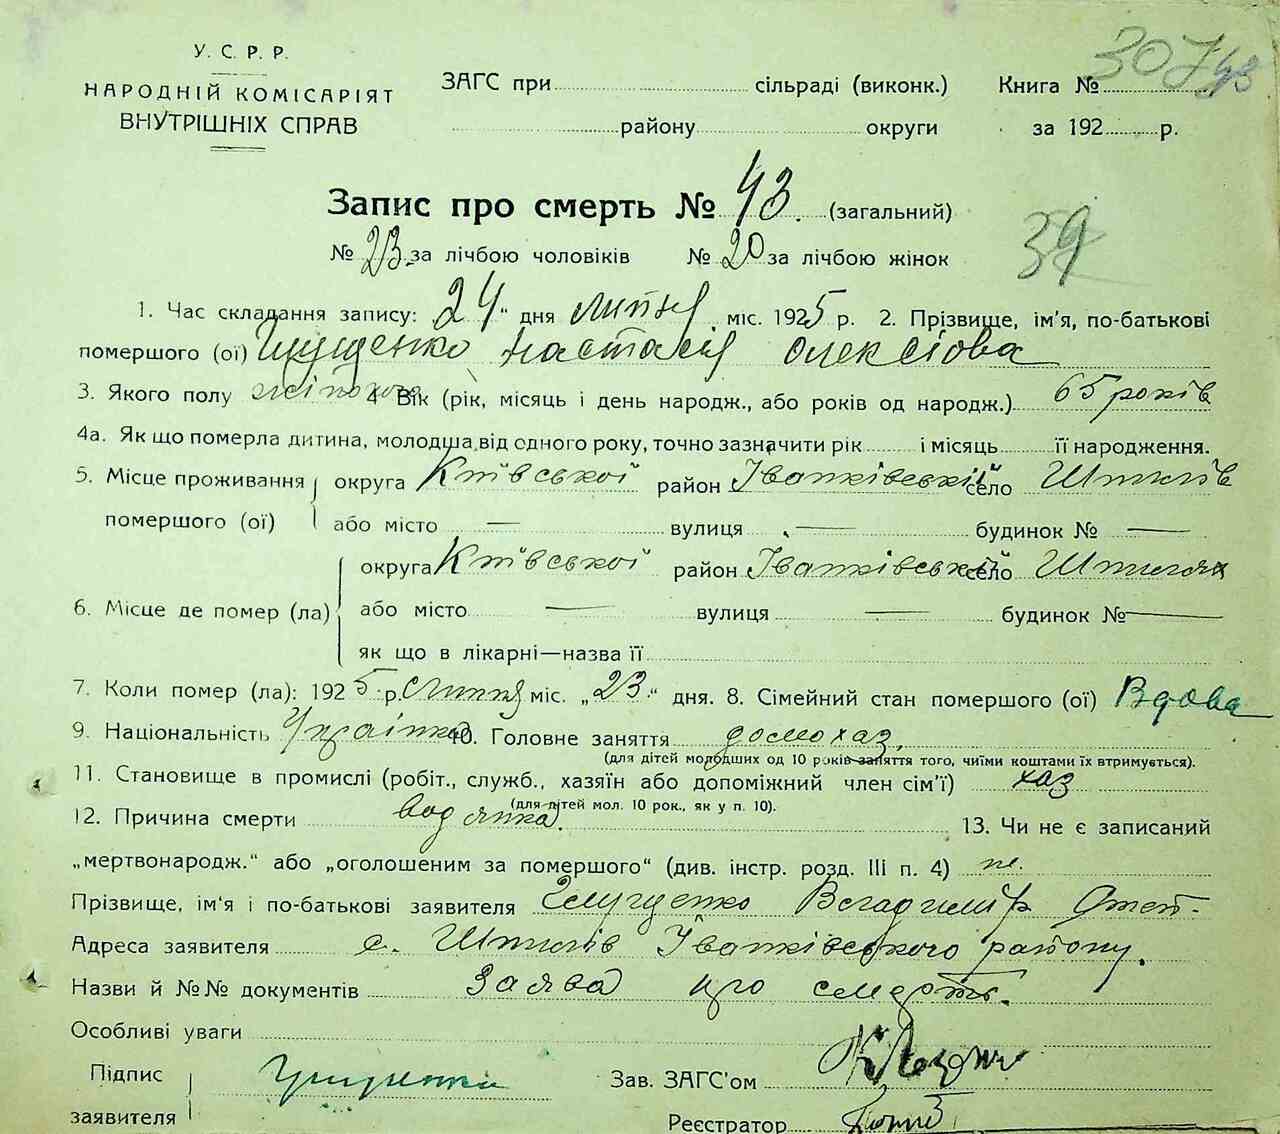 307 43
У. С. Р. Р.
НАРОДНІЙ КОМІСАРІЯТ
ВНУТРІШНІХ СПРАВ
ЗАГС при сільраді (виконк.) Книга №
району округи за 192 р.
Запис про смерть № 43. (загальний)
39
№ 23. за лічбою чоловіків № 20 за лічбою жінок
1. Час складання запису: 24 " дня липня міс. 1925 р. 2. Прізвище, ім'я, по-батькові
помершого (ої) Настасія Олексіова
3. Якого полу жіночого 4 Вік (рік, місяць і день народж., або років од народж.) 65 років
4а. Як що померла дитина, молодша від одного року, точно зазначити рік і місяць її народження.
5. Місце проживання округа Київської район Іванківський село Шпилів
помершого (ої) або місто — вулиця — будинок № —
округа Київської район Іванківський село Шпилях
6. Місце де помер (ла) або місто — вулиця — будинок № —
як що в лікарні—назва її
7. Коли помер (ла): 1925 р. Липня міс. „23." дня. 8. Сімейний стан помершого (ої) Вдова
9. Національність Українка 10. Головне заняття домохаз.
(для дітей молодших од 10 років заняття того, чиїми коштами їх втримується).
11. Становище в промислі (робіт., служб., хазяїн або допоміжний член сім'ї) хаз
(для дітей мол. 10 рок., як у п. 10).
12. Причина смерти водянка. 13. Чи не є записаний
„мертвонародж." або „оголошеним за помершого" (див. інстр. розд. III п. 4) ні.
Прізвище, ім'я і по-батькові заявителя Владимір
Адреса заявителя с. Шпилів Іванківського району.
Назви й №№ документів Заява про смерть.
Особливі уваги
Підпис
заявителя
Зав. ЗАГС'ом
Реєстратор